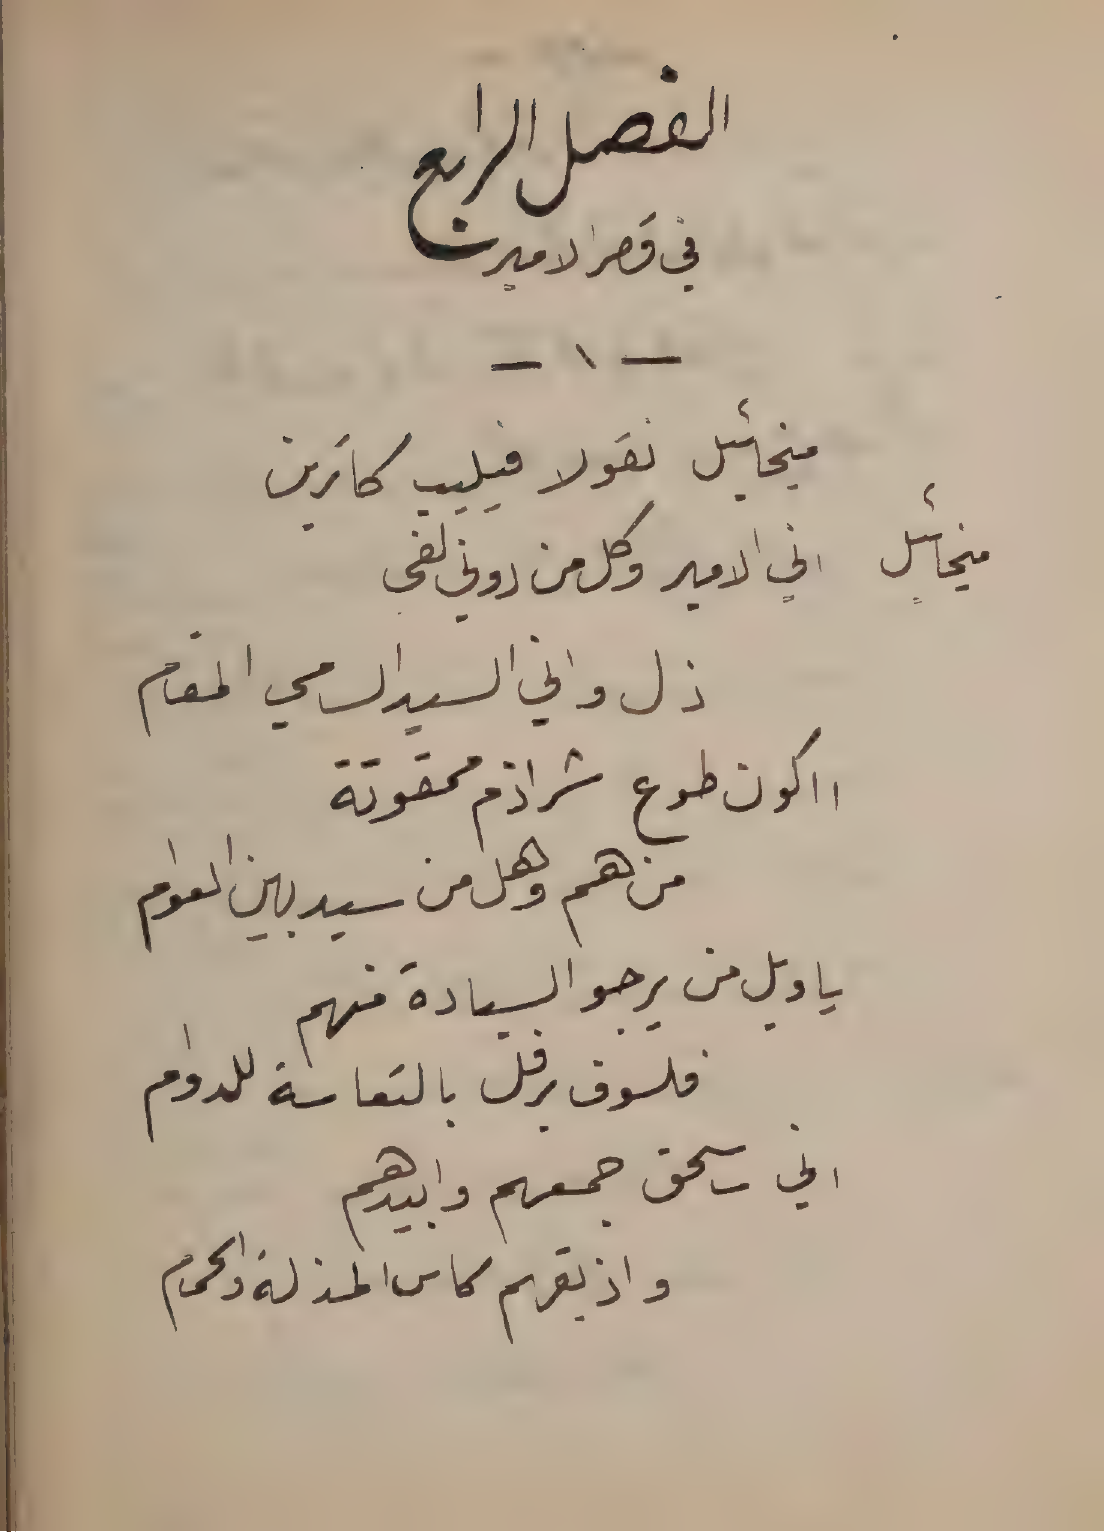 الفصل الرابع
في قصر الامير
— ١ —
ميخائيل نقولا فيليب كاترين
ميخائيل اني الامير وكل من دوني لفي
ذل واني السيد السامي المقام
ااكون طوع شراذم ممقوتة
من هم وهل من سيد بين العوام
يا ويل من يرجو السيادة منهم
فلسوف يرفل بالتعاسة للدوام
اني سأسحق جمعهم وابيدهم
واذيقهم كاس المذلة والحمام